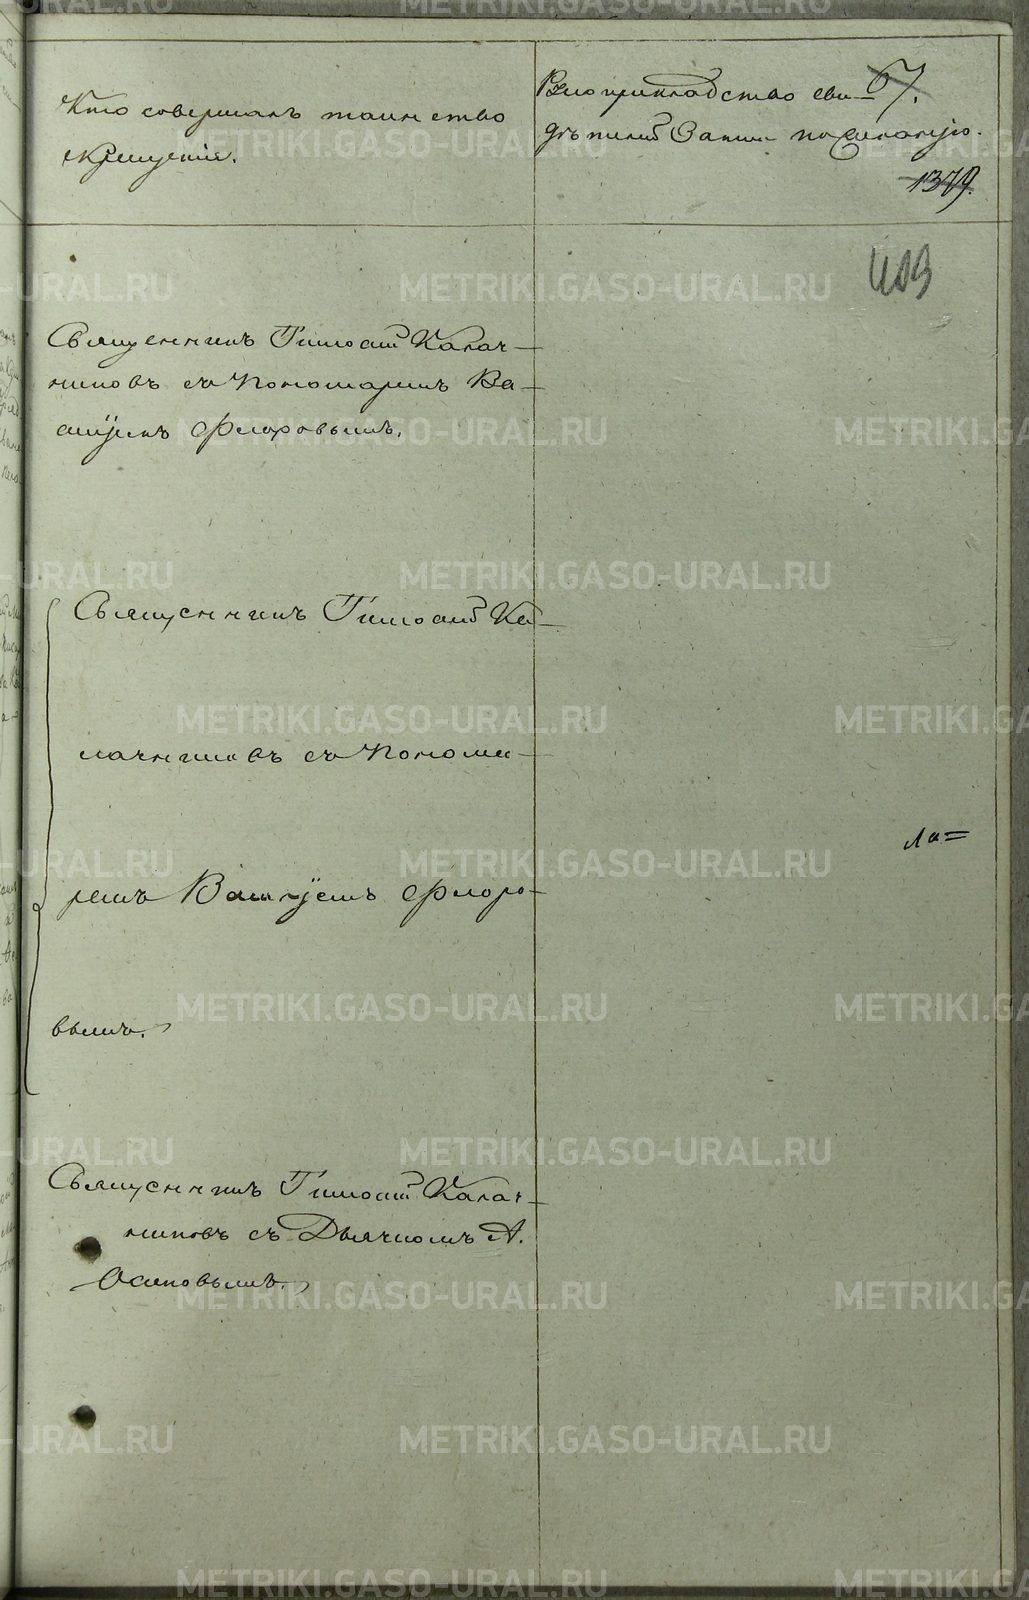 Кто совершалъ таинство
крещенія.
Рукоприкладство сви-
дѣтелей Записи по желанію.
67.
1379.
409
Священникъ Тимоѳей Калач-
никовъ съ Пономаремъ Ва-
Флоровымъ.
Священникъ Тимоѳей Ка-
лачниковъ съ Понома-
ремъ Флоро-
вымъ.
Ла=
Священникъ Тимоѳей Калач-
никовъ съ Дьячкомъ А.
Осиповымъ.
METRIKI.GASO-URAL.RU